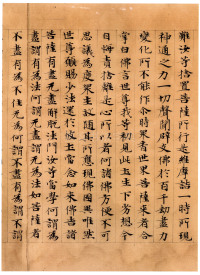 難汝等捨置菩薩所行是維摩詰一時所現
神通之力一切聲聞辟支佛於百千劫盡力
變化所不能作尒時衆香世界菩薩來者合
掌白佛言世尊我等初見此土生下劣想今
自悔責捨離是心所以者何諸佛方便不可
思議為度衆生故隨其所應現佛國異唯然
世尊願賜少法還於彼土當念如來佛告諸
菩薩有盡无盡解脫法門汝等當學何謂為
盡謂有為法何謂无盡謂无為法如菩薩者
不盡有為不住无為何謂不盡有為謂不